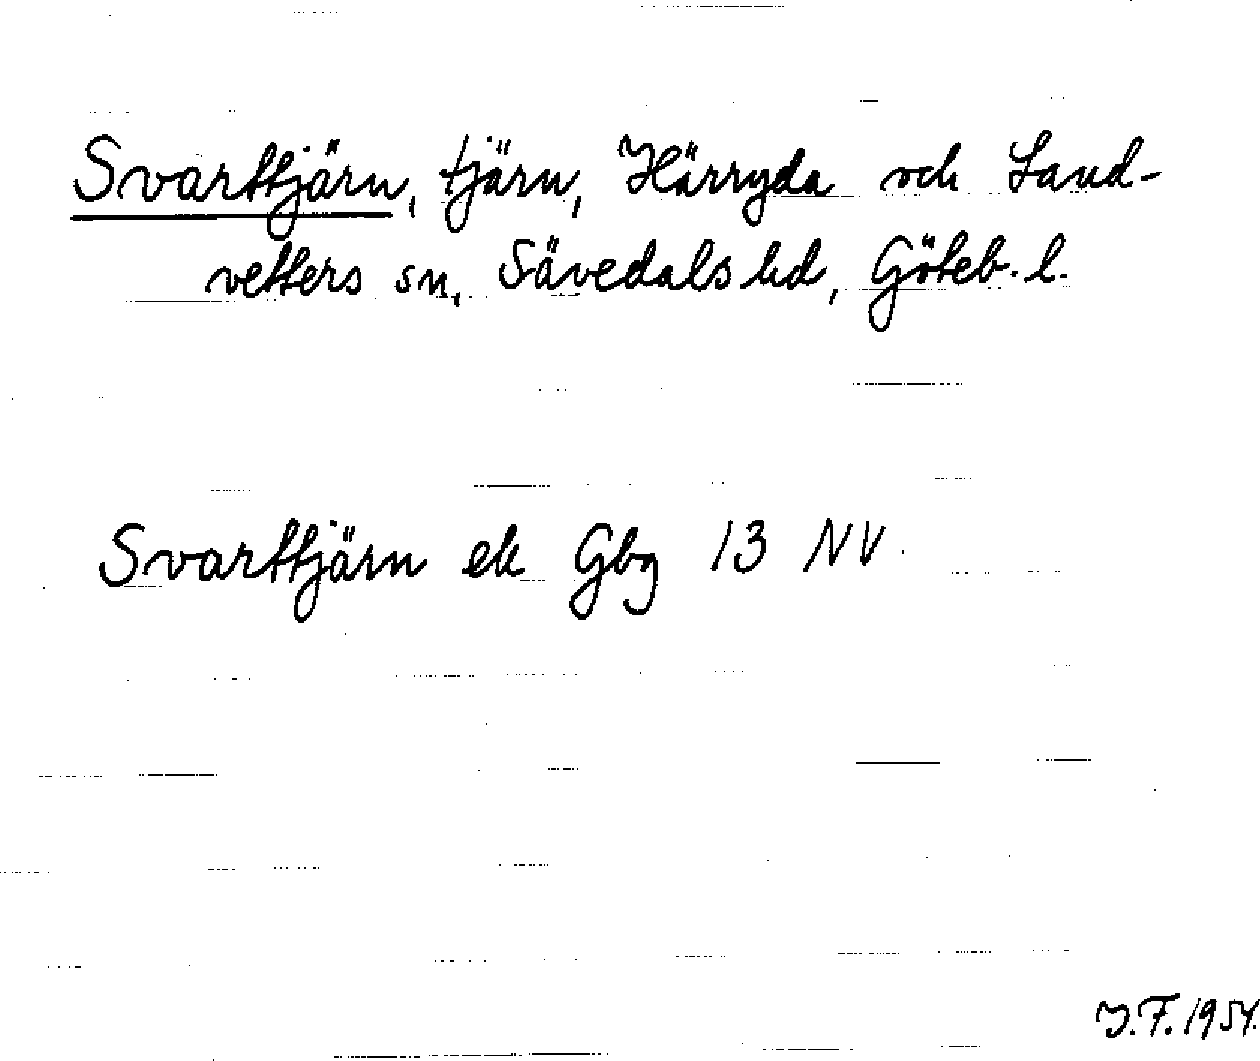 Svarttjärn, tjärn, Härryda och Land-
vetters sn, Sävedals hd, Göteb. l.
Svarttjärn ek Gbg 13 NV.
J.F. 1954.